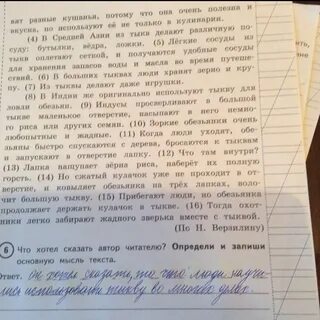 вят разные кушанья, потому что она очень полезна и
вкусна, но используют её не только в кулинарии.
(4) В Средней Азии из тыкв делают различную по-
суду: бутылки, вёдра, ложки. (5) Лёгкие сосуды из
тыкв оплетают сеткой, и получаются удобные сосуды
для хранения запасов воды и масла во время путеше-
ствий. (6) В больших тыквах люди хранят зерно и кру-
пу. (7) Из тыквы делают даже игрушки.
(8) В Индии же оригинально используют тыкву для
ловли обезьян. (9) Индусы просверливают в большой
тыкве маленькое отверстие, насыпают в него немно-
го риса или других семян. (10) Зоркие обезьянки очень
любопытные и жадные. (11) Когда люди уходят, обе-
зьяны быстро спускаются с дерева, бросаются к тыквам
и запускают в отверстие лапку. (12) Что там внутри?
(13) Лапка нащупает зёрна риса, наберёт их полную
горсть. (14) Но сжатый кулачок уже не проходит в от-
верстие, и ковыляет обезьянка на трёх лапках, воло-
чит большую тыкву. (15) Прибегают люди, но обезьянка
продолжает держать кулачок в тыкве. (16) Тогда охот-
ники легко забирают жадного зверька вместе с тыквой.
(По Н. Верзилину)
6 Что хотел сказать автор читателю? Определи и запиши
основную мысль текста.
Ответ. он хотел сказать, то что люди научи-
лися использовати тыкву во многих целях.